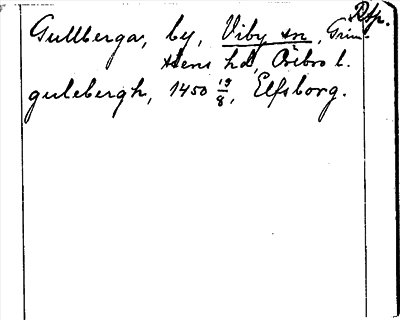 Rsp.
Gullberga, by, Viby sn, Grim-
stens hd, Örebro l.
gulebergh, 1450 19/8, Elfsborg.